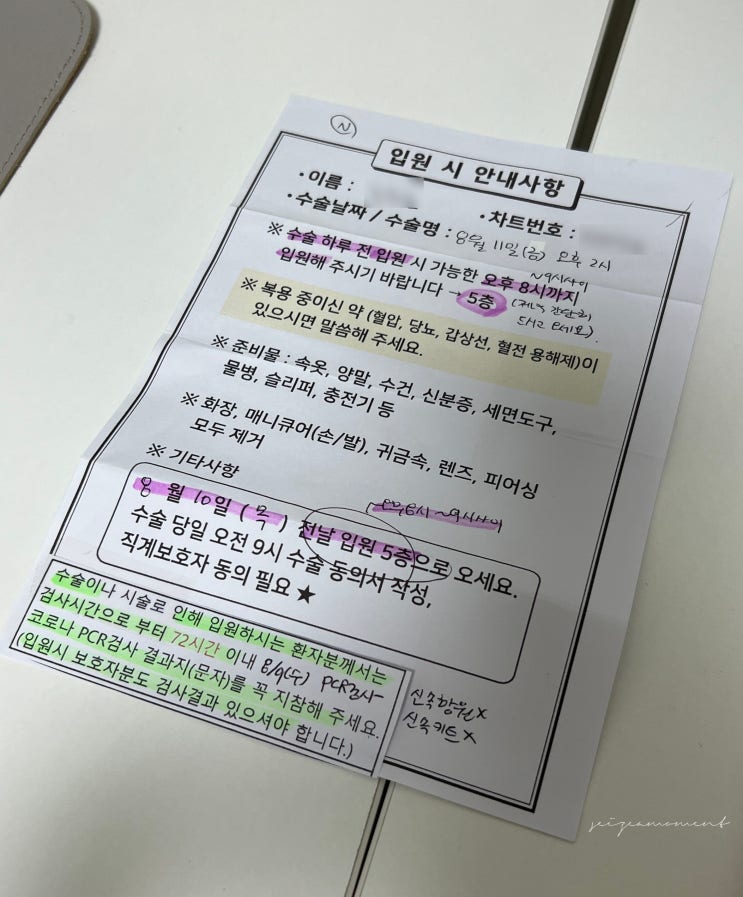 N
입원 시 안내사항
・이름 :
・차트번호 :
・수술날짜 / 수술명 : 8월 11일(금) 오후 2시
~9시사이
※ 수술 하루 전 입원 시 가능한 오후 8시까지
입원해 주시기 바랍니다 → 5층 (저녁 간단히
드시고 오세요).
※ 복용 중이신 약 (혈압, 당뇨, 갑상선, 혈전 용해제)이
있으시면 말씀해 주세요.
※ 준비물 : 속옷, 양말, 수건, 신분증, 세면도구,
물병, 슬리퍼, 충전기 등
※ 화장, 매니큐어(손/발), 귀금속, 렌즈, 피어싱
모두 제거
※ 기타사항
~9시사이
8월 10일 (목) 전날 입원 5층으로 오세요.
수술 당일 오전 9시 수술 동의서 작성,
직계보호자 동의 필요 ★
수술이나 시술로 인해 입원하시는 환자분께서는
검사시간으로 부터 72시간 이내 8/9(수) PCR검사
코로나 PCR검사 결과지(문자)를 꼭 지참해 주세요.
(입원시 보호자분도 검사결과 있으셔야 합니다.)
신속항원X
신속키트X
seizeamoment